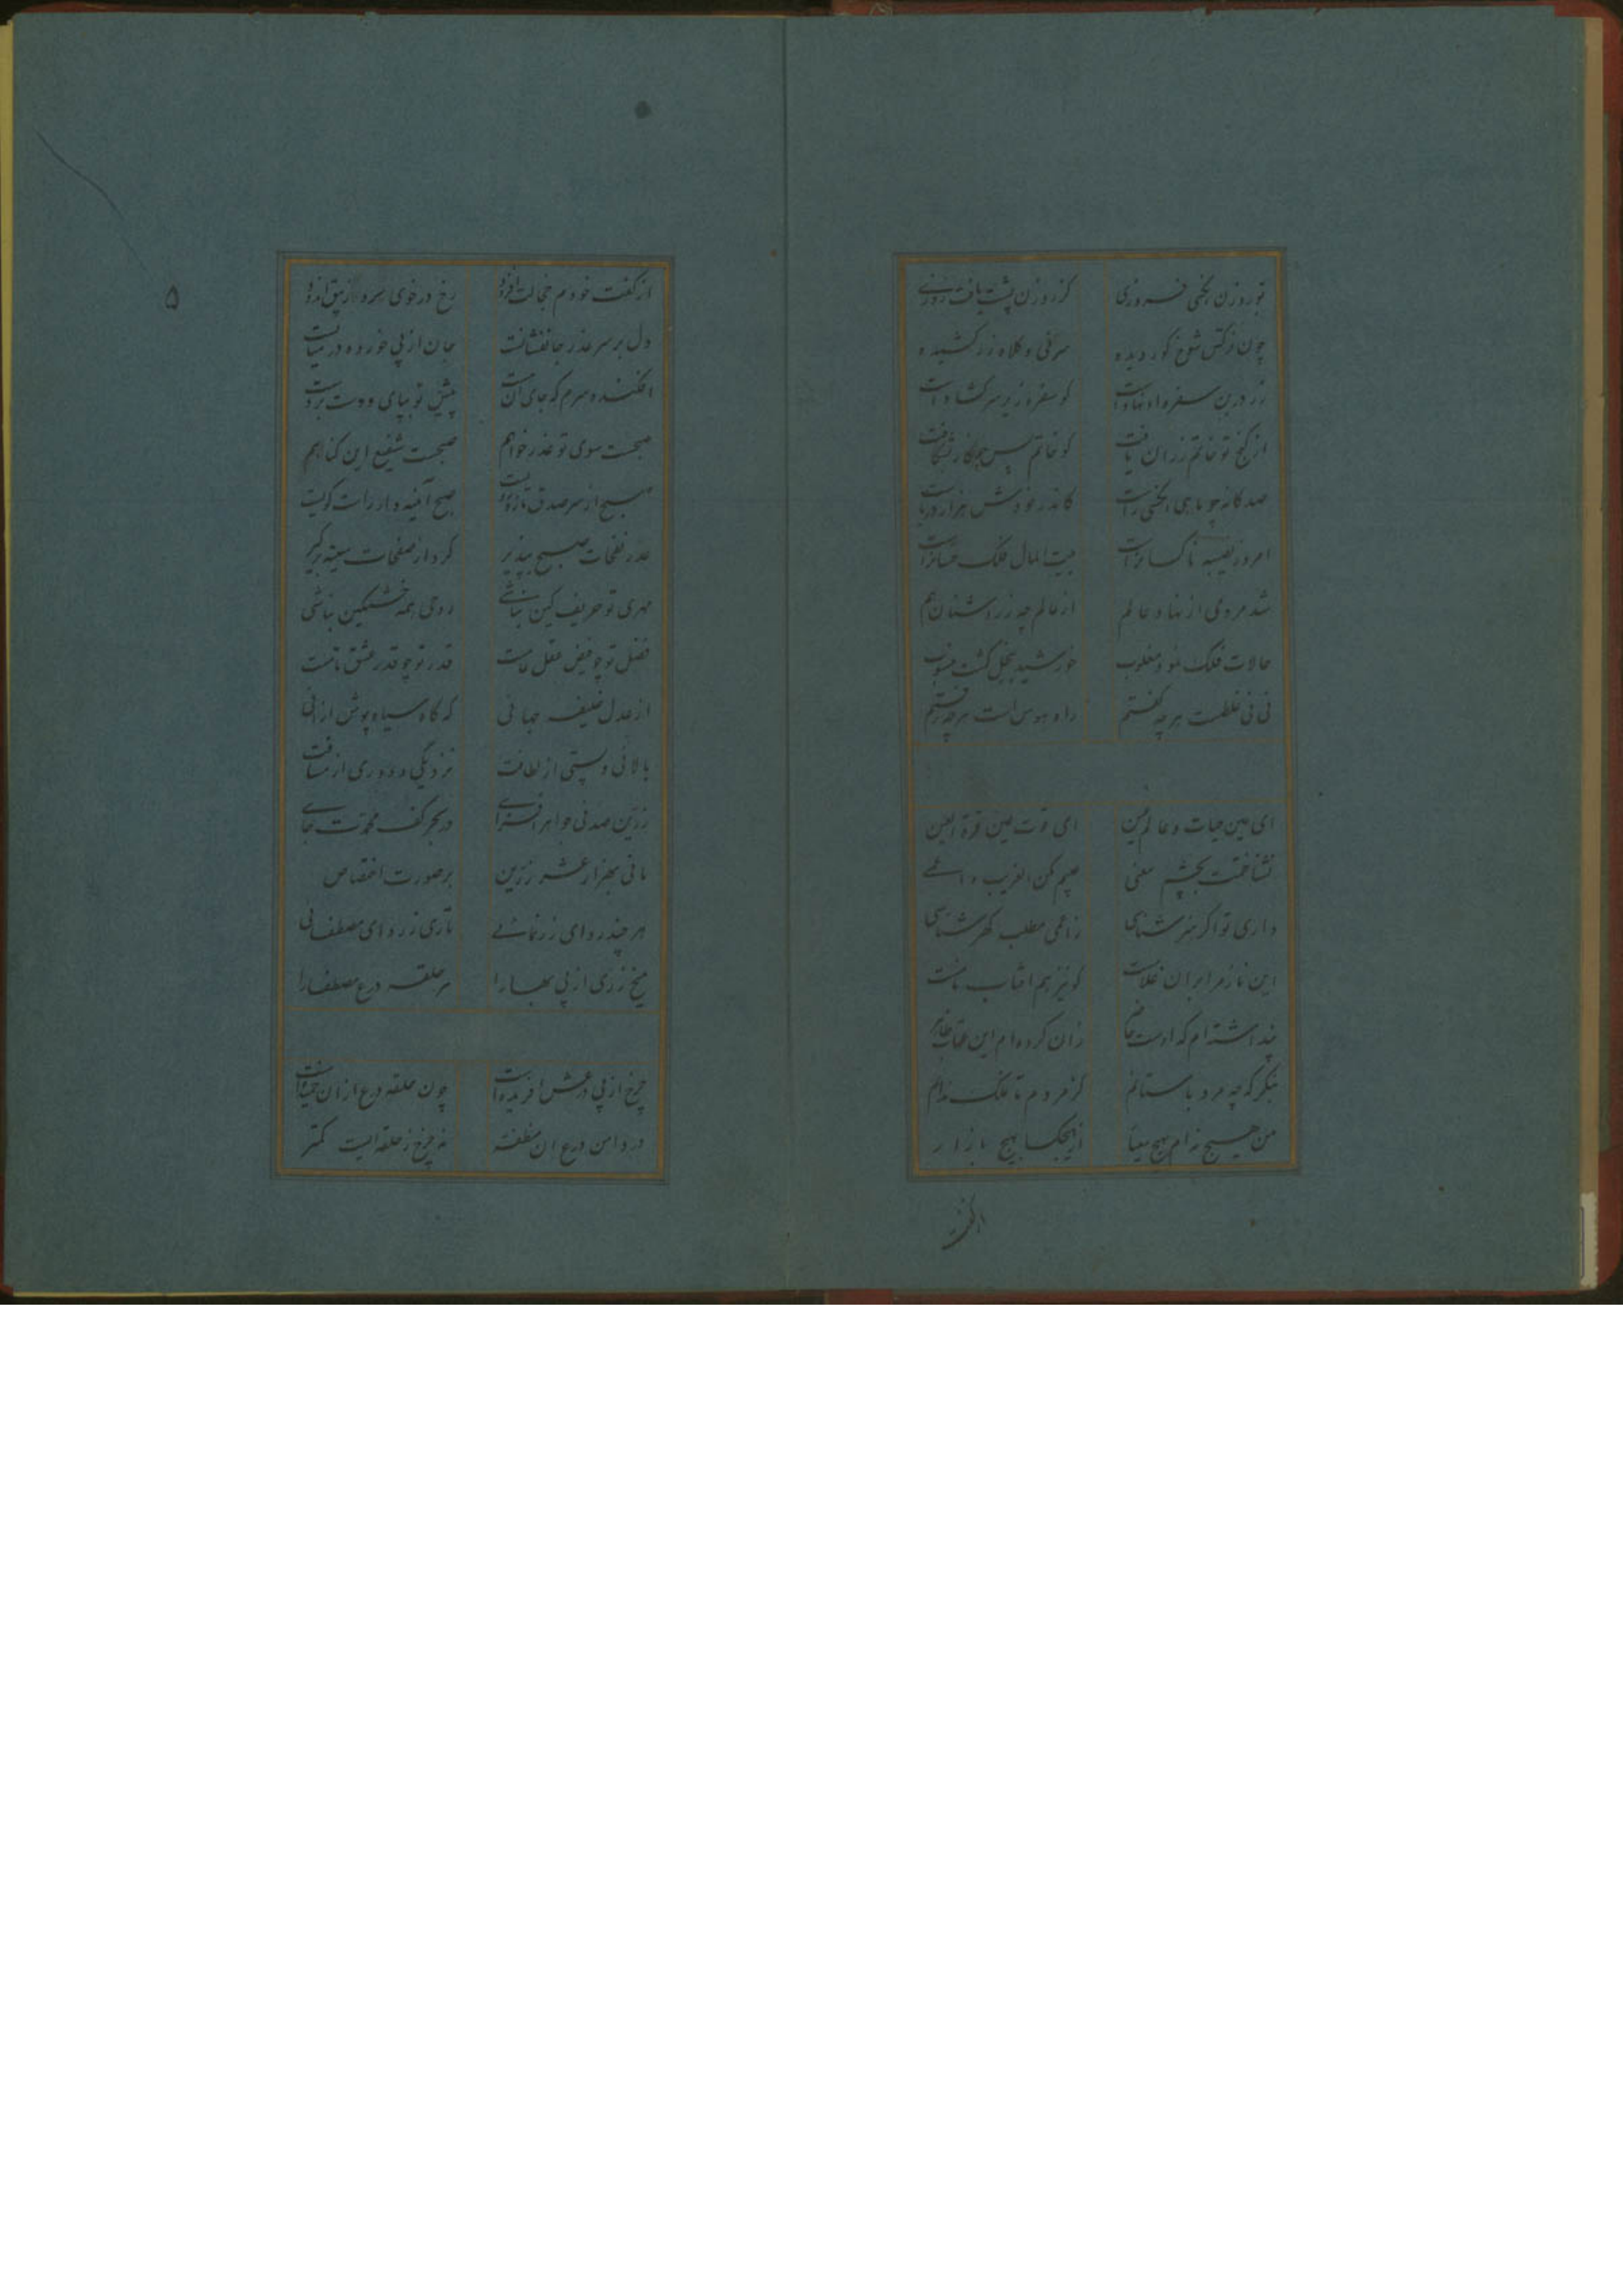 تو روزن بختی فروزی کز روزن پشت یافت روزی
چون نرکس شوخ کور دیده سر فی و کلاه زر کشیده
زر درین سفره او نهادست کو سفره زیر سر کشادست
از کنج تو خاتم زر آن یافت کو خاتم پس شکافت
صد کانه چو ماهی
امروز نصیبه ناکسانراست بیت المال فلک خسانراست
شد مردمی از نهاد عالم از عالم چه زر
حالات فلک شد و مغلوب خورشید بخل کشت منسوب
نی نی غلطست هرچه کفتم راه هوس است هرچه رفتم
ای عین حیات و عالم عین ای قوت عین قرة العین
نشناختمت بچشم معنی
داری تو اکر هنر شناسی زاعمی مطلب کهر شناسی
این نازم ابر آن غلامست کو نیز هم آفتاب نامست
پنداشته ام که اوست حاضر زان کرده ام این عتاب ظاهر
بنکر که چه مرد باستانم کز مردم تا فلک ندانم
من هیچ ندانم هیچ معیار از هیچکسا بهیچ بازار
از کفت
از کفت خودم خجالت افزود رخ در خوی سرد زیبق اندود
دل بر سر عذر جانفشانست جان از پی خورده در میانست
افکنده سرم که جای آنست پیش تو بپای
صبحت سوی تو عذر خواهم صبحت شفیع این کناهم
صبح از سر صدق تازه رویست صبح آینه دار راست کویست
عذر نفحات صبح بپذیر کرد از صفحات سینه برکیر
مهری تو حریف کین نباشی روحی همه خشمکین نباشی
فضل تو چو فیض عقل عامست قدر تو چو قدر عشق تامست
از عدل خلیفه جهانی که کاه سیاه پوش از آنی
بالائی و پستی از لطافت نزدیکی و دوری از مسافت
زرین صدفی جواهر افزای در بحر کف محمدت جای
مانی بهزار عشر زرین بر صورت اختصاص
هر چند ردای زر نمائی تاری ز ردای مصطفائی
میخ زری از پی بها را بر حلقه درع مصطفا را
چرخ از پی درعش آفریده است چون حلقه درع از آن خمیده است
در دامن درع آن مظفر نه چرخ ز حلقه ایست کمتر
۵